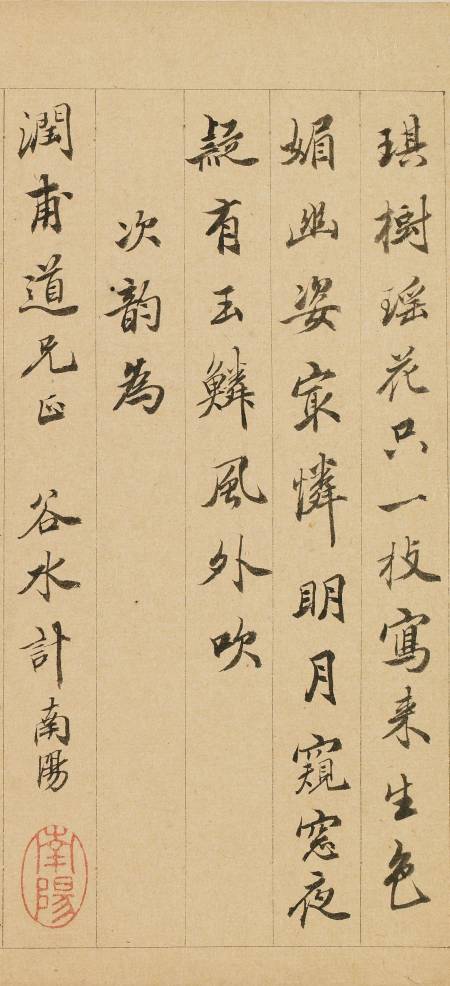 琪樹瑶花只一枝寫来生色
媚幽姿㝡憐明月窺窓夜
疑有玉鱗風外吹
次韵為
潤甫道兄正 谷水計南陽
南陽